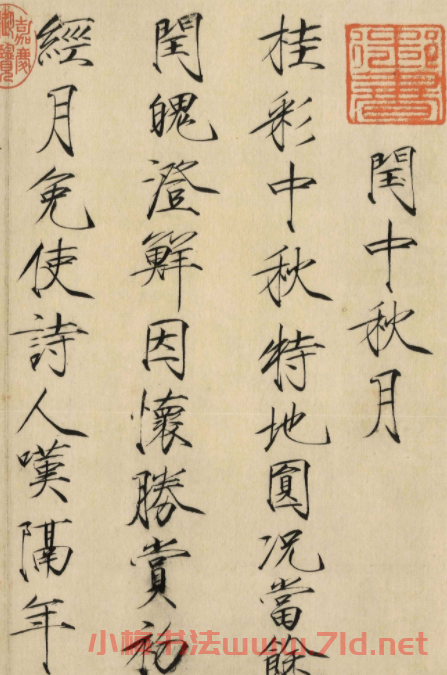 閏中秋月
桂彩中秋特地圓况當餘
閏魄澄鮮因懷勝賞初
經月免使詩人嘆隔年
嘉慶
小楷书法www.7ld.net